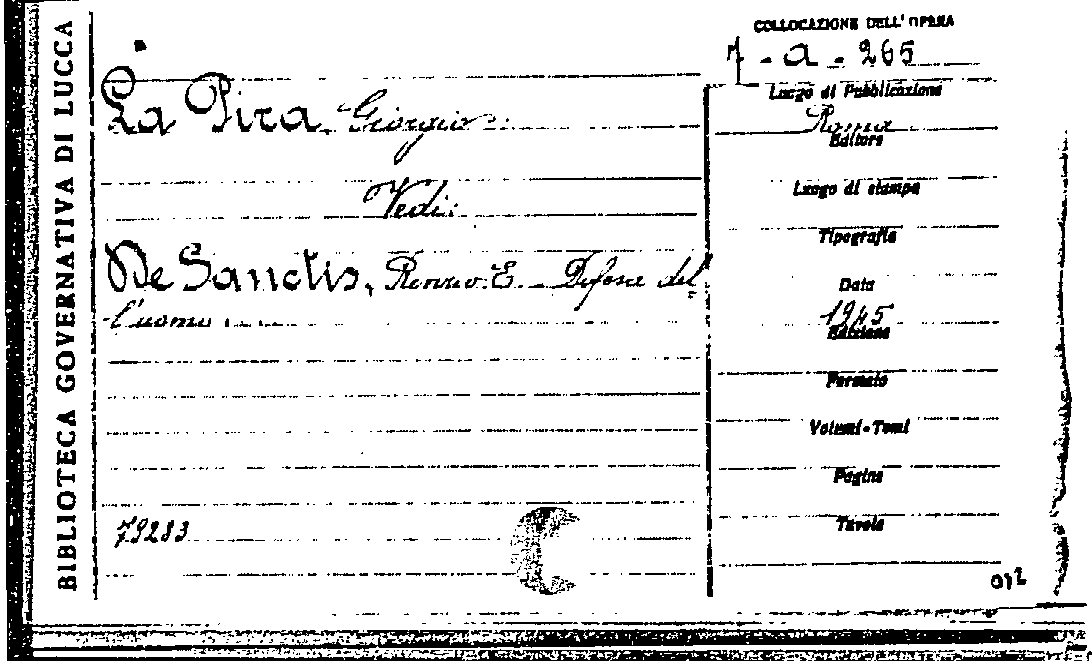 BIBLIOTECA GOVERNATIVA DI LUCCA
COLLOCAZIONE DELL'OPERA
7 - a - 265
La Pira Giorgio
Vedi:
De Sanctis, E. - Difesa del
l'uomo .....
79283
Luogo di Pubblicazione
Roma
Editore
Luogo di stampa
Tipografia
Data
1945
Edizione
Formato
Volumi-Tomi
Pagine
Tavole
012